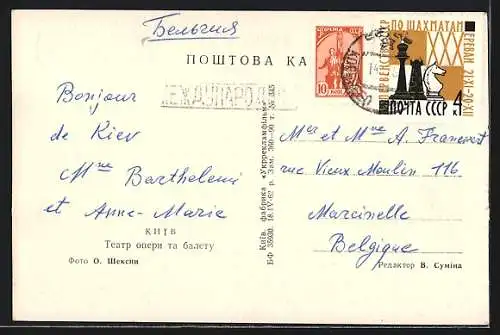 Бельгия
ПОШТОВА КА
МЕЖДУНАРОД
Bonjour
de Kiev
Mme Barthelemi
et Anne-Marie
КИЇВ
Театр опери та балету
Фото О. Шексин
Київ. фабрика «Укррекламфільм»
БФ 35930. 18.IV-62 р. Зам. 360-90 т.
10
ПЕРВЕНСТВО СССР ПО ШАХМАТАМ
ЕРЕВАН 21.XI-20.XII
ПОЧТА СССР 4
Mer et Mme A.
rue Vieux Moulin 116
Marcinelle
Belgique
Редактор В. Суміна